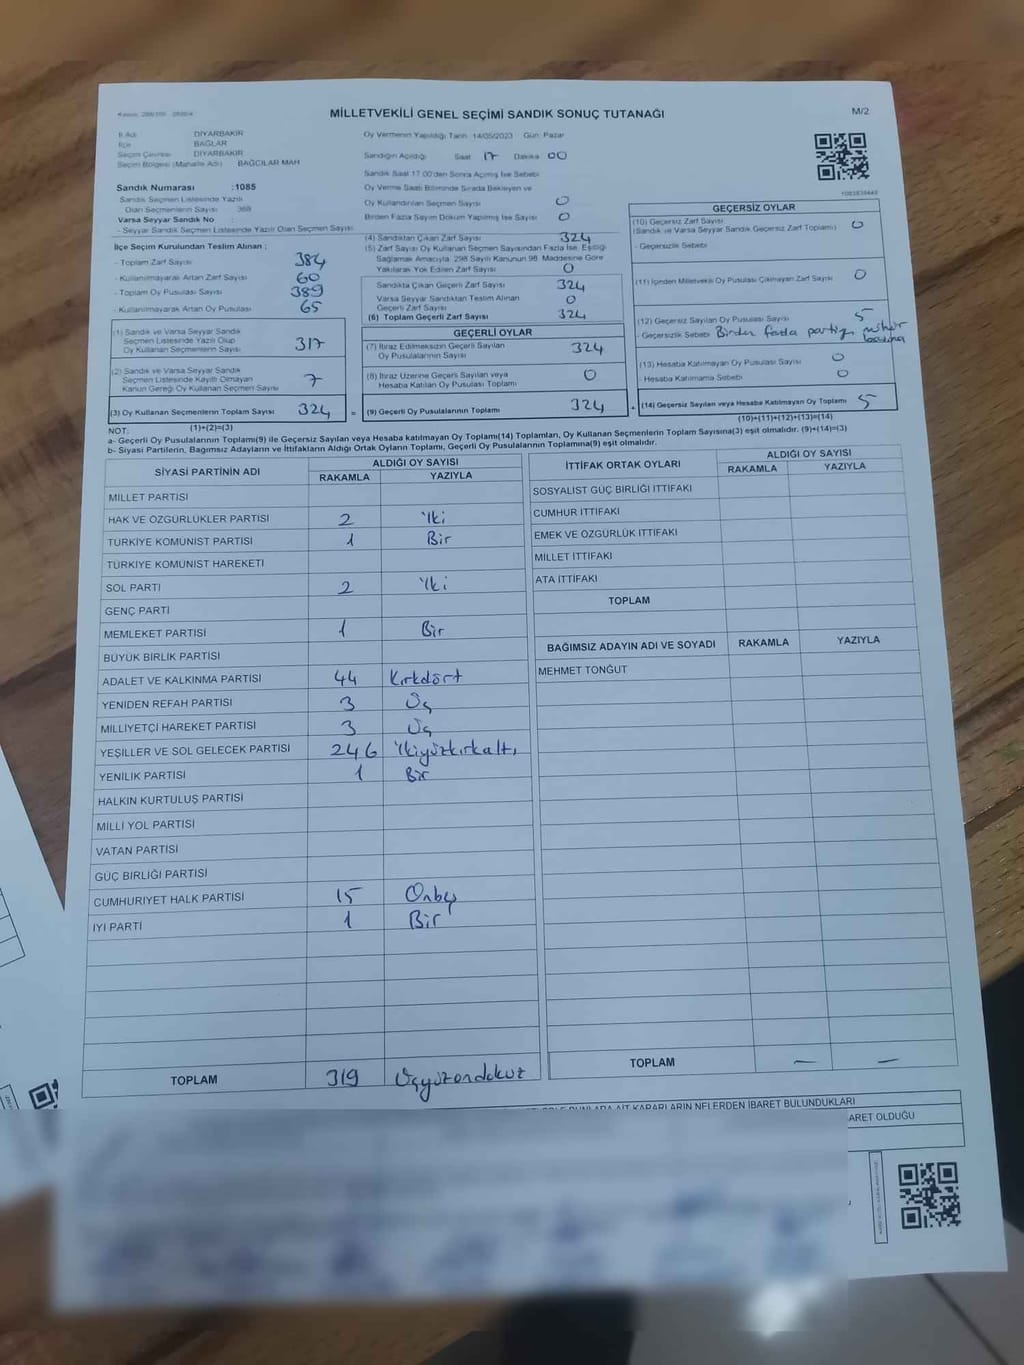 MİLLETVEKİLİ GENEL SEÇİMİ SANDIK SONUÇ TUTANAĞI
M/2
İl Adı DİYARBAKIR
İlçe BAĞLAR
Seçim Çevresi DİYARBAKIR
Seçim Bölgesi (Mahalle Adı) BAĞCILAR MAH
Sandık Numarası :1085
Sandık Seçmen Listesinde Yazılı
Olan Seçmenlerin Sayısı : 368
Varsa Seyyar Sandık No :
- Seyyar Sandık Seçmen Listesinde Yazılı Olan Seçmen Sayısı
İlçe Seçim Kurulundan Teslim Alınan ;
- Toplam Zarf Sayısı 384
- Kullanılmayarak Artan Zarf Sayısı 60
- Toplam Oy Pusulası Sayısı 389
- Kullanılmayarak Artan Oy Pusulası 65
(1) Sandık ve Varsa Seyyar Sandık
Seçmen Listesinde Yazılı Olup
Oy Kullanan Seçmenlerin Sayısı 317
(2) Sandık ve Varsa Seyyar Sandık
Seçmen Listesinde Kayıtlı Olmayan
Kanun Gereği Oy Kullanan Seçmen Sayısı 7
(3) Oy Kullanan Seçmenlerin Toplam Sayısı 324
(1)+(2)=(3)
Oy Vermenin Yapıldığı Tarih 14/05/2023 Gün: Pazar
Sandığın Açıldığı Saat 17 Dakika 00
Sandık Saat 17.00'den Sonra Açılmış İse Sebebi
Oy Verme Saati Bitiminde Sırada Bekleyen ve
Oy Kullandırılan Seçmen Sayısı 0
Birden Fazla Sayım Döküm Yapılmış İse Sayısı 0
(4) Sandıktan Çıkan Zarf Sayısı 324
(5) Zarf Sayısı Oy Kullanan Seçmen Sayısından Fazla İse, Eşitliği
Sağlamak Amacıyla, 298 Sayılı Kanunun 98. Maddesine Göre
Yakılarak Yok Edilen Zarf Sayısı 0
Sandıkta Çıkan Geçerli Zarf Sayısı 324
Varsa Seyyar Sandıktan Teslim Alınan
Geçerli Zarf Sayısı 0
(6) Toplam Geçerli Zarf Sayısı 324
GEÇERLİ OYLAR
(7) İtiraz Edilmeksizin Geçerli Sayılan
Oy Pusulalarının Sayısı 324
(8) İtiraz Üzerine Geçerli Sayılan veya
Hesaba Katılan Oy Pusulası Toplamı 0
= (9) Geçerli Oy Pusulalarının Toplamı 324
GEÇERSİZ OYLAR
(10) Geçersiz Zarf Sayısı 0
(Sandık ve Varsa Seyyar Sandık Geçersiz Zarf Toplamı)
- Geçersizlik Sebebi
(11) İçinden Milletvekili Oy Pusulası Çıkmayan Zarf Sayısı 0
(12) Geçersiz Sayılan Oy Pusulası Sayısı 5
- Geçersizlik Sebebi Birden fazla partiye mühür
(13) Hesaba Katılmayan Oy Pusulası Sayısı 0
- Hesaba Katılmama Sebebi 0
+ (14) Geçersiz Sayılan veya Hesaba Katılmayan Oy Toplamı 5
(10)+(11)+(12)+(13)=(14)
NOT:
a- Geçerli Oy Pusulalarının Toplamı(9) ile Geçersiz Sayılan veya Hesaba katılmayan Oy Toplamı(14) Toplamları, Oy Kullanan Seçmenlerin Toplam Sayısına(3) eşit olmalıdır. (9)+(14)=(3)
b- Siyasi Partilerin, Bağımsız Adayların ve İttifakların Aldığı Ortak Oyların Toplamı, Geçerli Oy Pusulalarının Toplamına(9) eşit olmalıdır.
SİYASİ PARTİNİN ADI ALDIĞI OY SAYISI
RAKAMLA YAZIYLA
MİLLET PARTİSİ
HAK VE ÖZGÜRLÜKLER PARTİSİ 2 İki
TÜRKİYE KOMÜNİST PARTİSİ 1 Bir
TÜRKİYE KOMÜNİST HAREKETİ
SOL PARTİ 2 İki
GENÇ PARTİ
MEMLEKET PARTİSİ 1 Bir
BÜYÜK BİRLİK PARTİSİ
ADALET VE KALKINMA PARTİSİ 44 Kırkdört
YENİDEN REFAH PARTİSİ 3 Üç
MİLLİYETÇİ HAREKET PARTİSİ 3 Üç
YEŞİLLER VE SOL GELECEK PARTİSİ 246 İkiyüzkırkaltı
YENİLİK PARTİSİ 1 Bir
HALKIN KURTULUŞ PARTİSİ
MİLLİ YOL PARTİSİ
VATAN PARTİSİ
GÜÇ BİRLİĞİ PARTİSİ
CUMHURİYET HALK PARTİSİ 15 Onbeş
İYİ PARTİ 1 Bir
TOPLAM 319 Üçyüzondokuz
İTTİFAK ORTAK OYLARI ALDIĞI OY SAYISI
RAKAMLA YAZIYLA
SOSYALİST GÜÇ BİRLİĞİ İTTİFAKI
CUMHUR İTTİFAKI
EMEK VE ÖZGÜRLÜK İTTİFAKI
MİLLET İTTİFAKI
ATA İTTİFAKI
TOPLAM
BAĞIMSIZ ADAYIN ADI VE SOYADI RAKAMLA YAZIYLA
MEHMET TONĞUT
TOPLAM — —
KARARLARIN NELERDEN İBARET BULUNDUKLARI
ARET OLDUĞU